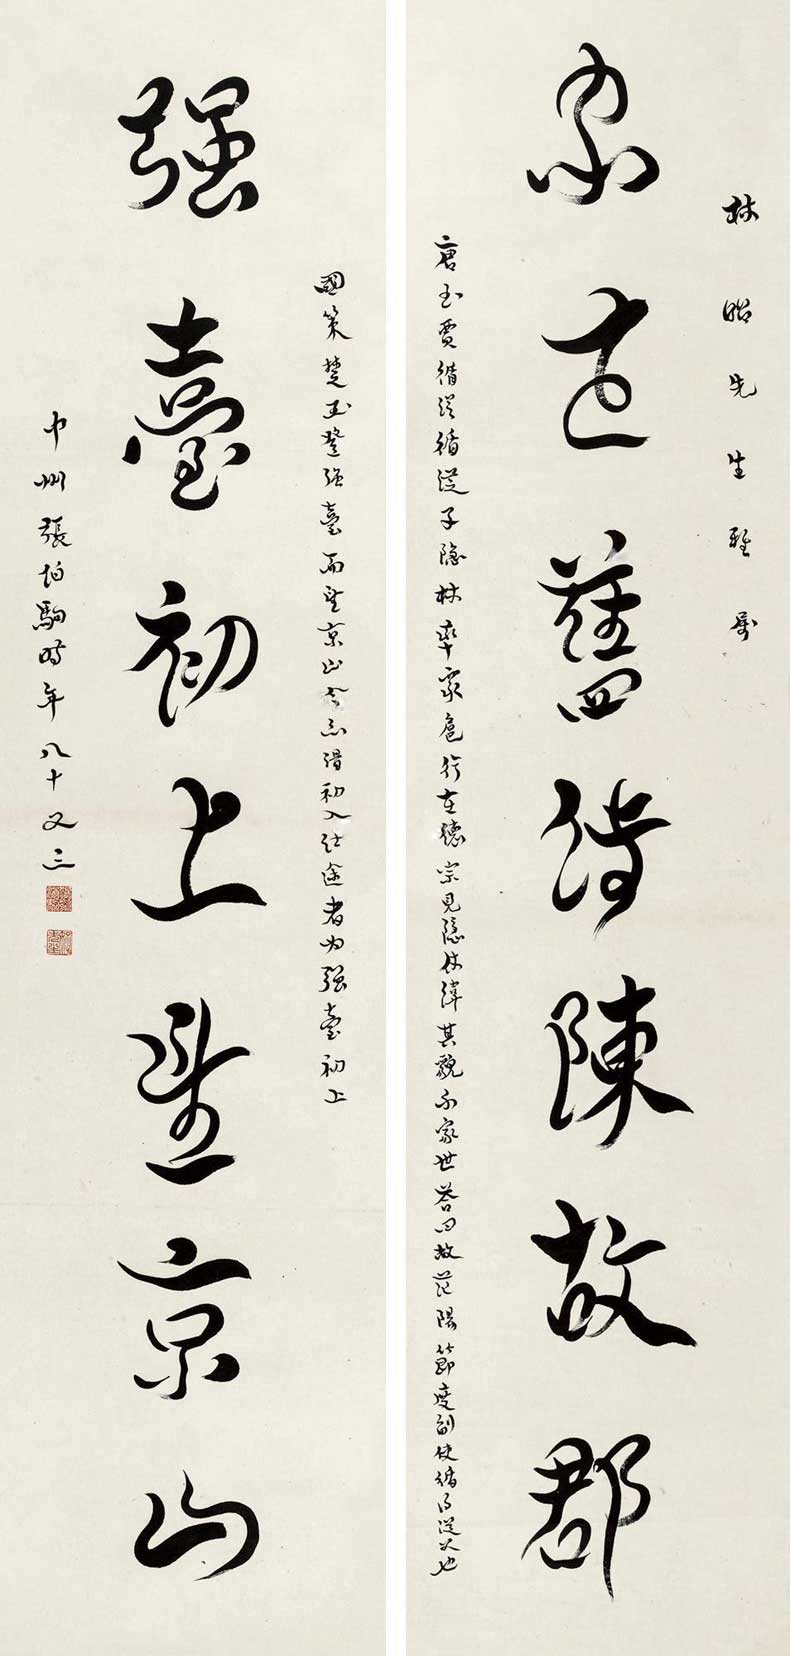 林昭先生雅屬
家世舊傳陳故郡
唐書賈循傳循從子隐林率家扈行在德宗見隐林偉其貌問家世答曰故范陽節度副使循臣從父也
國策楚王登强臺而望京山今亦謂初入仕途者为强臺初上
强臺初上望京山
中州張伯駒時年八十又三